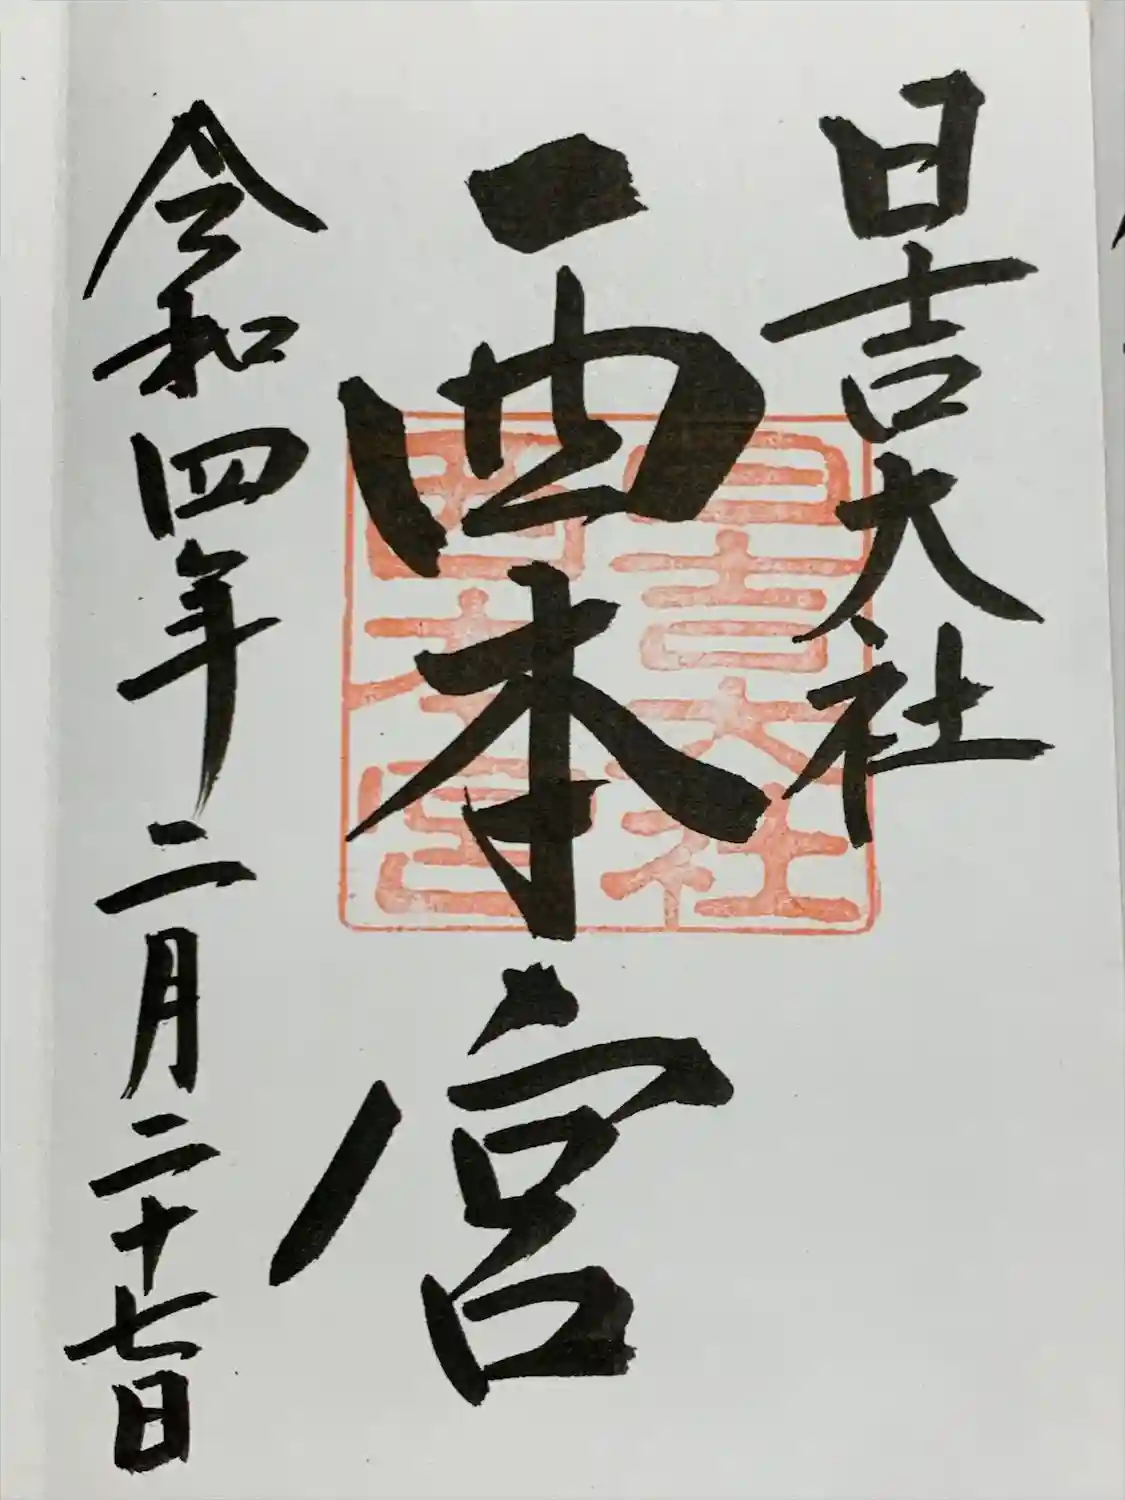 日吉大社
西本宮
令和四年二月二十七日
日吉大社
西本宮